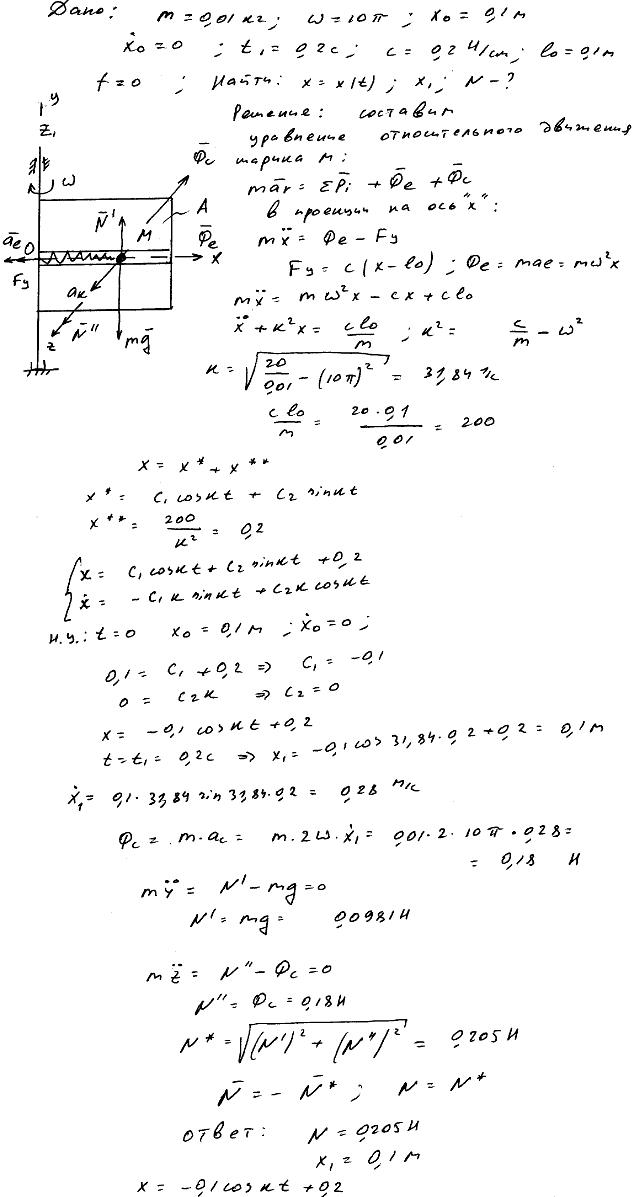 Дано: m = 0,01 кг; ω = 10π; x₀ = 0,1 м
ẋ₀ = 0; t₁ = 0,2 с; c = 0,2 Н/см; l₀ = 0,1 м
f = 0; Найти: x = x(t); x₁; N - ?
Решение: составим
уравнение относительного движения
шарика M:
y
z₁
ω
Φ̄c
N̄'
M
A
āe
O
Φ̄e
x
Fy
aк
N̄''
z
mḡ
mār = ΣP̄i + Φ̄e + Φ̄c
в проекции на ось "x":
mẍ = Φe - Fy
Fy = c(x - l₀); Φe = mae = mω²x
mẍ = mω²x - cx + cl₀
ẍ + к²x = cl₀/m; к² = c/m - ω²
к = √(20/0,01 - (10π)²) = 31,84 1/c
cl₀/m = 20·0,1/0,01 = 200
x = x* + x**
x* = C₁ cos кt + C₂ sin кt
x** = 200/к² = 0,2
{ x = C₁ cos кt + C₂ sin кt + 0,2
ẋ = -C₁к sin кt + C₂к cos кt
н.у.: t = 0 x₀ = 0,1 м; ẋ₀ = 0;
0,1 = C₁ + 0,2 => C₁ = -0,1
0 = C₂к => C₂ = 0
x = -0,1 cos кt + 0,2
t = t₁ = 0,2c => x₁ = -0,1 cos 31,84·0,2 + 0,2 = 0,1 м
ẋ₁ = 0,1·31,84 sin 31,84·0,2 = 0,28 м/с
Φc = m·ac = m·2ω·ẋ₁ = 0,01·2·10π·0,28 =
= 0,18 Н
mÿ = N' - mg = 0
N' = mg = 0,0981 Н
mz̈ = N'' - Φc = 0
N'' = Φc = 0,18 Н
N* = √((N')² + (N'')²) = 0,205 Н
N̄ = -N̄*; N = N*
ответ: N = 0,205 Н
x₁ = 0,1 м
x = -0,1 cos кt + 0,2